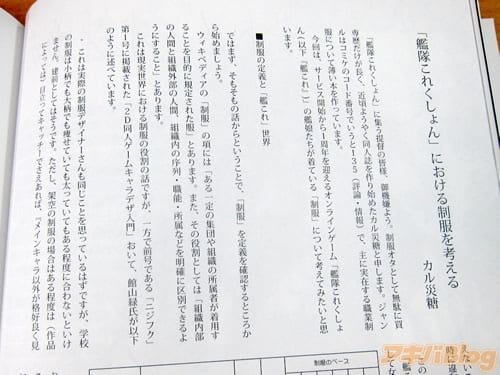 「艦隊これくしょん」における制服を考える
カル災糖
「艦隊これくしょん」に集う提督の皆様、御機嫌よう。制服オタとして無駄に買
専歴だけが長く、近頃ようやく同人誌を作り始めたカル災糖と申します。ジャン
ルはコミケのコード番号でいうと135（評論・情報）で、主に実在する職業制
服について薄い本を作っています。
今回は、サービス開始から1周年を迎えるオンラインゲーム「艦隊これくしょ
ん」（以下「艦これ」）の艦娘たちが着ている「制服」について考えてみたいと思
います。
■制服の定義と「艦これ」世界
ではまず、そもそもの話からということで、「制服」を定義を確認するところか
ら始めましょう。
ウィキペディアの「制服」の項には「ある一定の集団や組織の所属者が着用す
ることを目的に規定された服」とあります。また、その役割としては「組織内部
の人間と組織外部の人間、組織内の序列・職能・所属などを明確に区別できるよ
うにすること」とあります。
これは現実世界における制服の役割の話ですが、一方で前号である「ニジフク」
第1号に掲載された「2D同人ゲームキャラデザ入門」において、館山緑氏が以下
のように述べています。
・これは実際の制服デザイナーさんも同じことを思っているはずですが、学校
の制服は小柄でも大柄でも痩せていても太っていてもある程度に合わないといけ
ません。建前としてはそうです。ただし、架空の制服の場合はある程度は（作品
によっては）目立ってキャッチーでさえあれば、『メインキャラ以外が格好良く見
制服のベース
マキバBlog